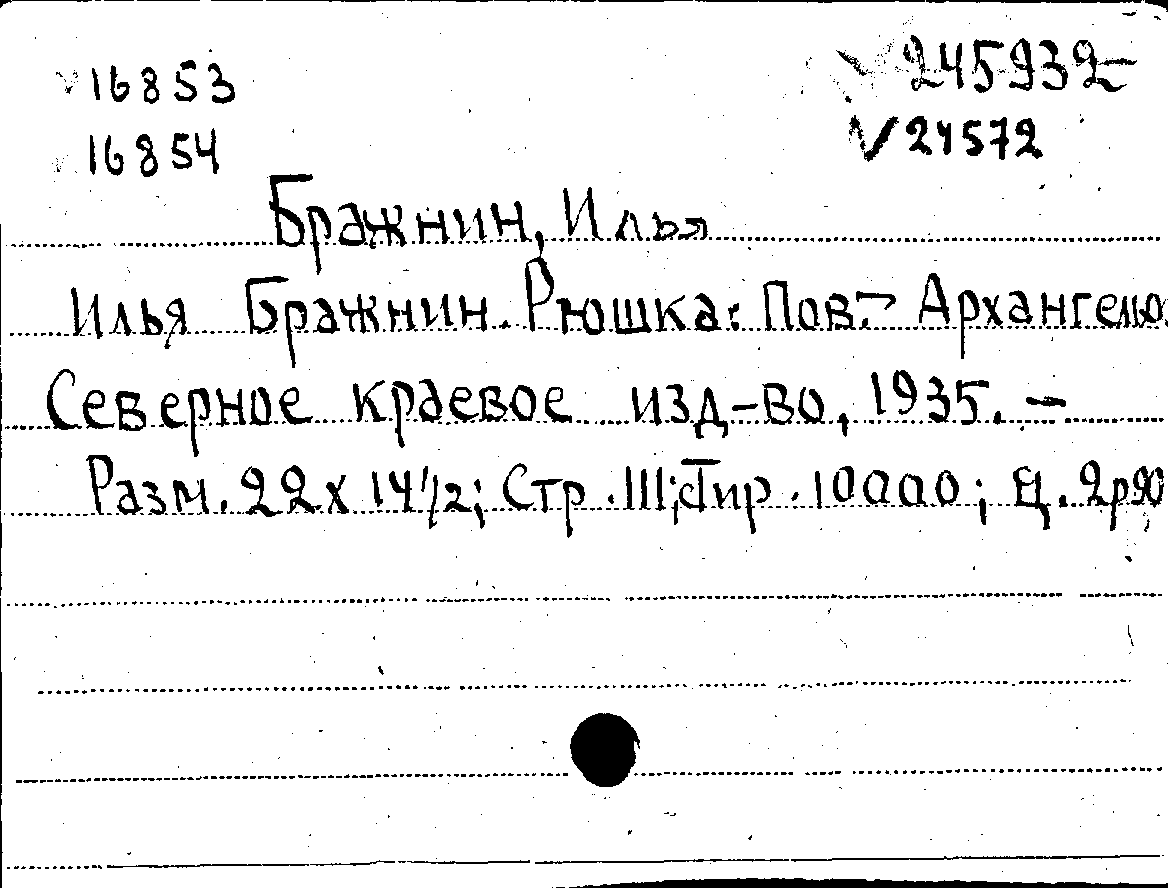 16853
245932
16854
24572
Бражнин, Илья
Илья Бражнин. Рюшка: Пов. – Архангельск
Северное краевое изд-во, 1935. –
Разм. 22 х 14 1/2; Стр. 111; Тир. 10000; Ц. 2р90